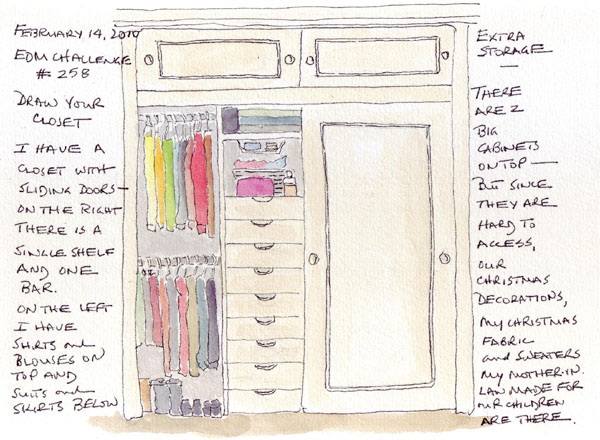 FEBRUARY 14, 2010
EDM CHALLENGE
# 258
DRAW YOUR
CLOSET
I HAVE A
CLOSET WITH
SLIDING DOORS —
ON THE RIGHT
THERE IS A
SINGLE SHELF
AND ONE
BAR.
ON THE LEFT
I HAVE
SHIRTS and
BLOUSES ON
TOP AND
SUITS and
SKIRTS BELOW
EXTRA
STORAGE
—
THERE
ARE 2
BIG
CABINETS
ON TOP —
BUT SINCE
THEY ARE
HARD TO
ACCESS,
OUR
CHRISTMAS
DECORATIONS,
MY CHRISTMAS
FABRIC
and SWEATERS
MY MOTHER-IN-
LAW MADE FOR
OUR CHILDREN
ARE THERE.